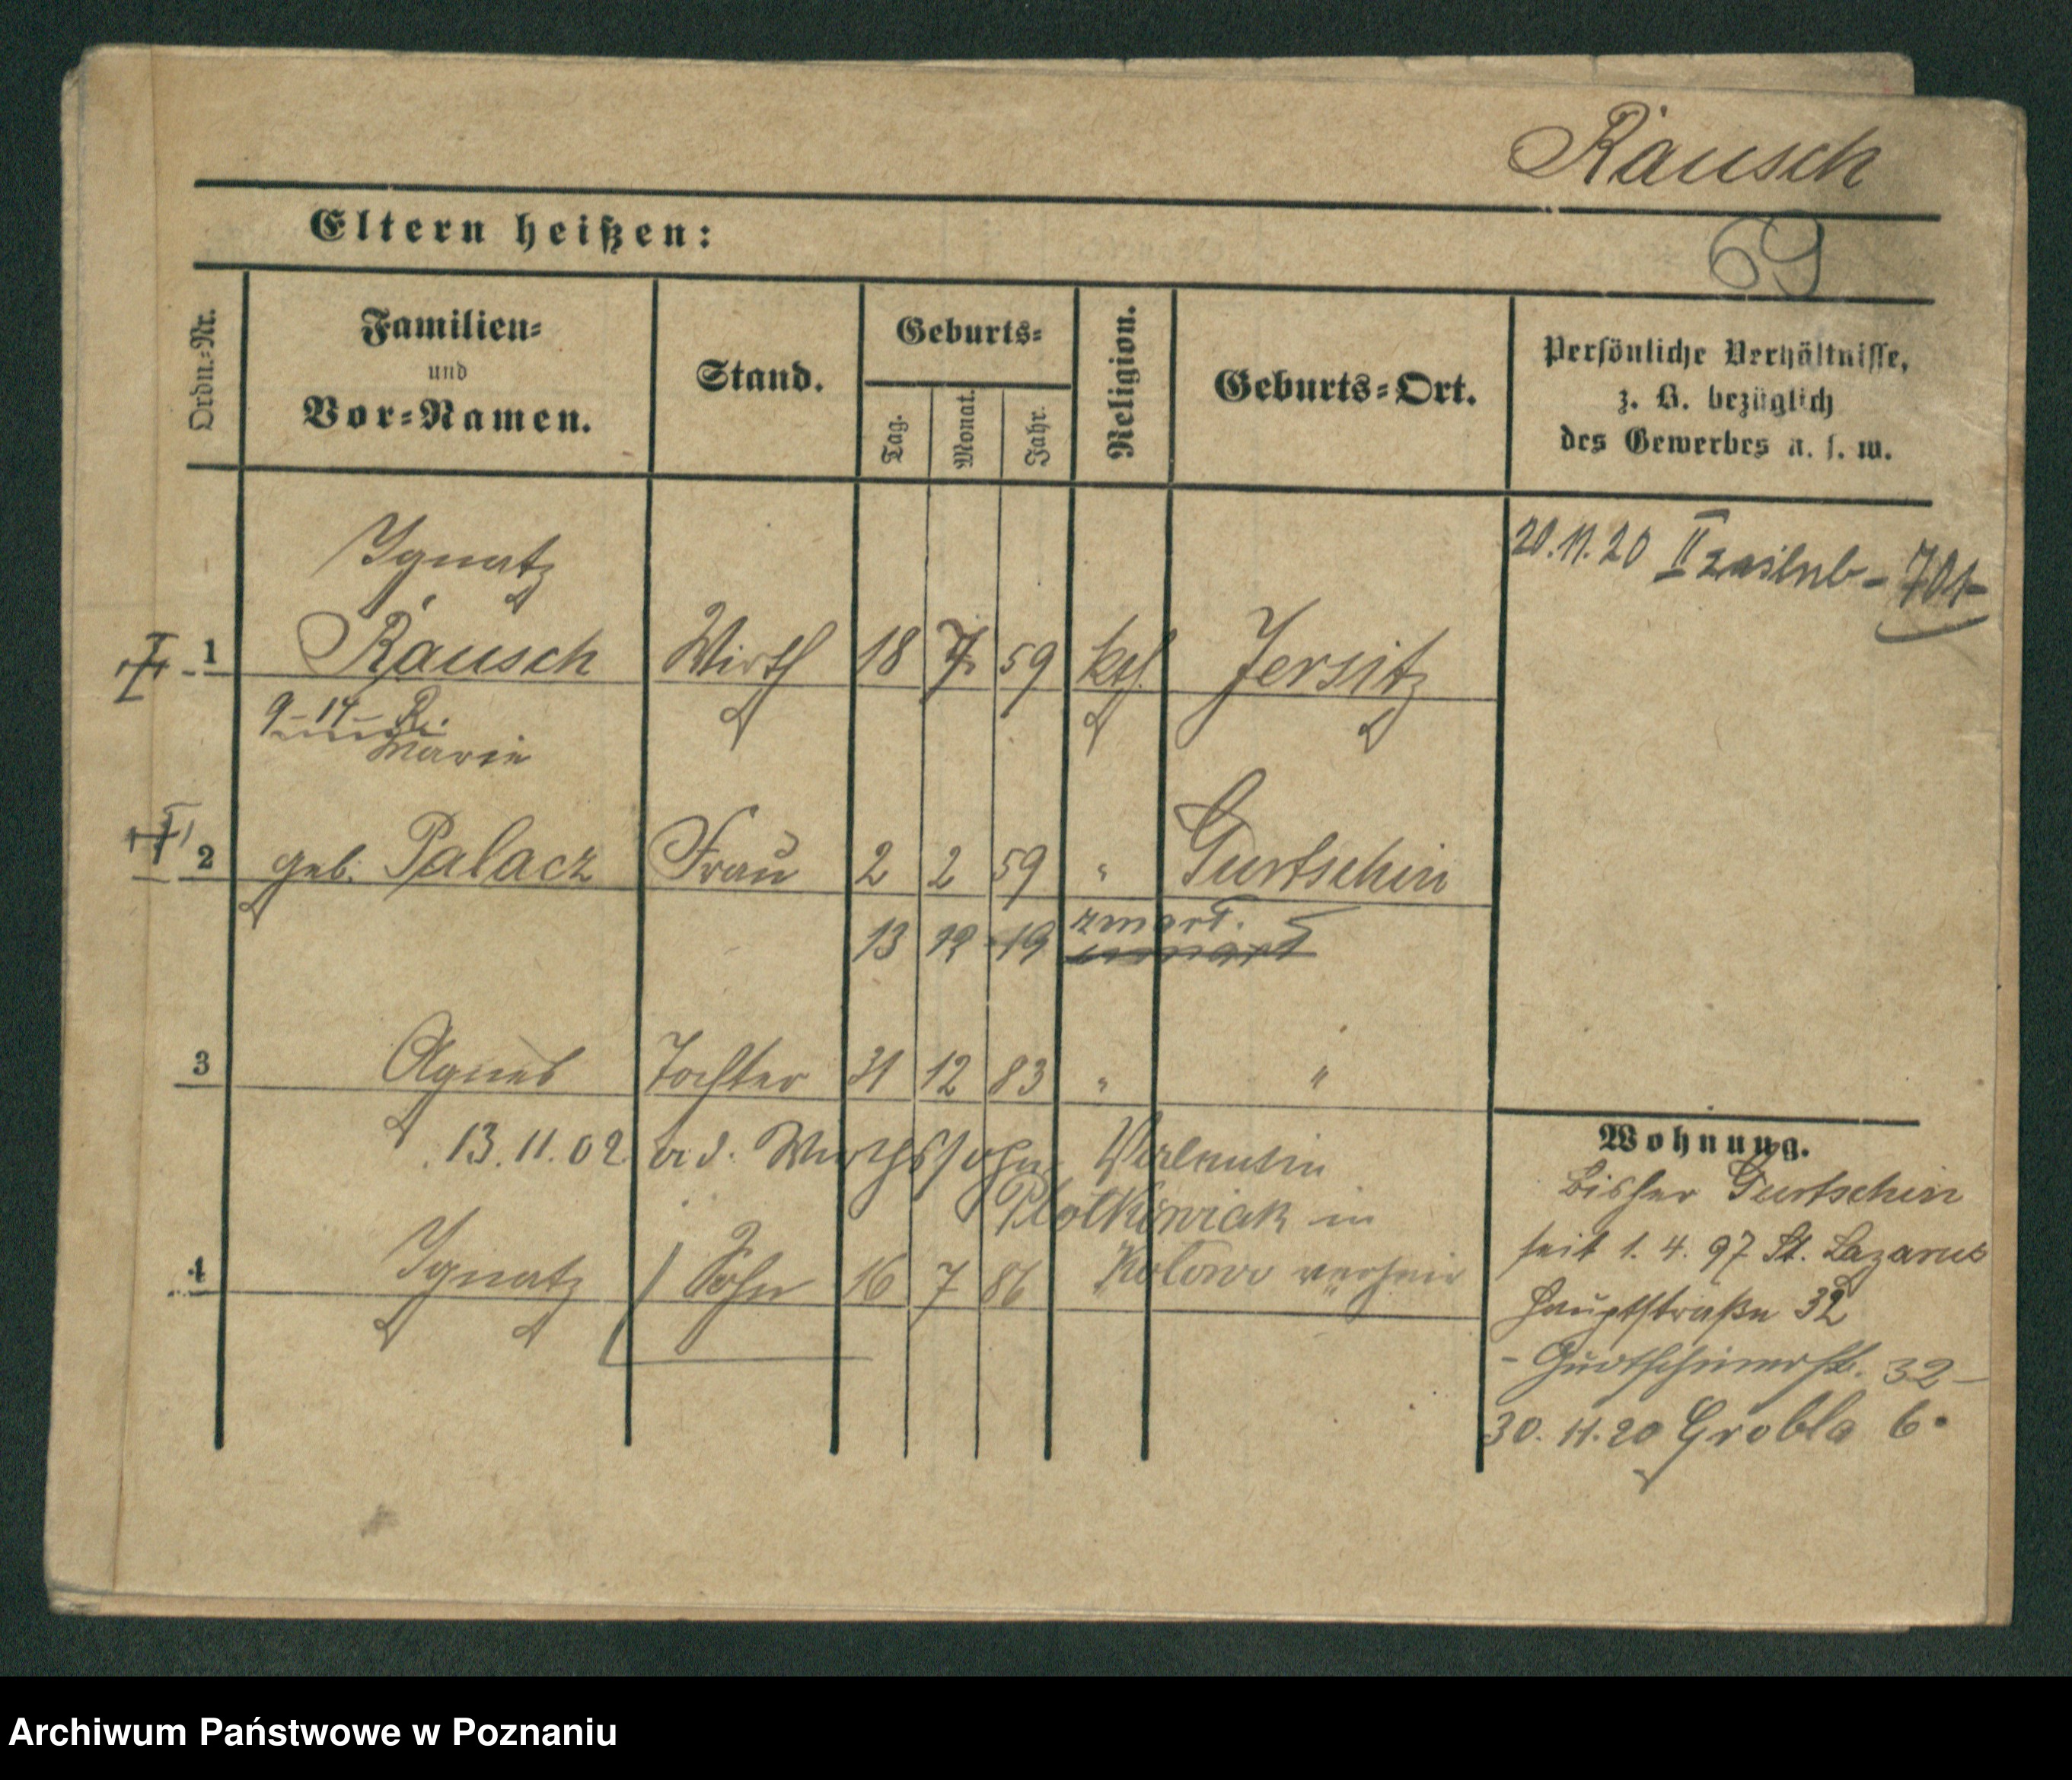 Rausch
69
Eltern heißen:
Ordn.-Nr.
Familien-
und
Vor-Namen.
Stand.
Geburts-
Tag.
Monat.
Jahr.
Religion.
Geburts-Ort.
Persönliche Verhältnisse,
z. B. bezüglich
des Gewerbes u. s. w.
20.11.20 II
Ignatz
1 Rausch Wirth 18 7 59 kth. Jersitz
9-14-
Marie
2 geb. Palacz Frau 2 2 59 " Gurtschin
13 12 19 zmart.
3 Agnes Tochter 31 12 83 " "
13.11.02 a. d. Wirthssohn Valentin
in
4 Ignatz Sohn 16 7 86
Wohnung.
bisher Gurtschin
seit 1. 4. 97 St. Lazarus
Hauptstraße 32
- Gurtschinerstr. 32 -
30. 11. 20 Grobla 6.
Archiwum Państwowe w Poznaniu